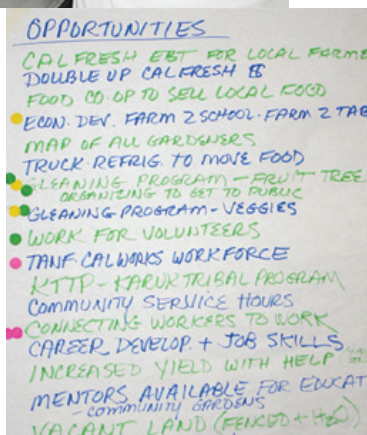 OPPORTUNITIES
CALFRESH EBT FOR LOCAL FARME
DOUBLE UP CALFRESH
FOOD CO-OP TO SELL LOCAL FOOD
ECON. DEV. FARM 2 SCHOOL. FARM 2 TAB
MAP OF ALL GARDENERS
TRUCK. REFRIG. TO MOVE FOOD
GLEANING PROGRAM - FRUIT TREE
ORGANIZING TO GET TO PUBLIC
GLEANING PROGRAM - VEGGIES
WORK FOR VOLUNTEERS
TANF. CALWORKS WORKFORCE
KTTP - KARUK TRIBAL PROGRAM
COMMUNITY SERVICE HOURS
CONNECTING WORKERS TO WORK
CAREER DEVELOP. + JOB SKILLS
INCREASED YIELD WITH HELP
MENTORS AVAILABLE FOR EDUCAT
- COMMUNITY GARDENS
VACANT LAND (FENCED + H2O)